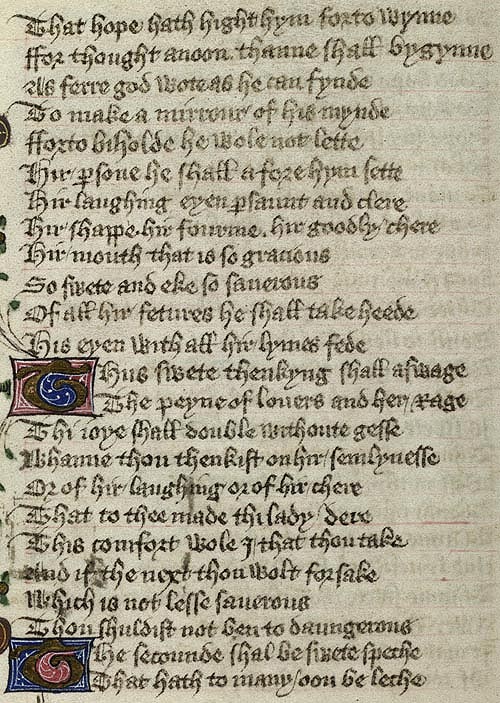 That hope hath hight hym forto wynne
ffor thought anoon thanne shall bygynne
As ferre god wote as he can fynde
To make a mirrour of his mynde
fforto biholde he wole not lette
Hir psone he shall afore hym sette
Hir laughing eyen psaunt and clere
Hir shappe hir fourme . hir goodly chere
Hir mouth that is so gracious
So swete and eke so sauerous
Of all hir fetures he shall take heede
His eyen with all hir lymes fede
Thus swete thenkyng shall aswage
The peyne of louers and her rage
Thi ioye shall double withoute gesse
Whanne thou thenkist on hir semlynesse
Or of hir laughing or of hir chere
That to thee made thi lady dere
This comfort wole I that thou take
And if the next thou wolt forsake
Which is not lesse sauerous
Thou shuldist not ben to daungerous
The secounde shal be swete speche
That hath to many oon be leche